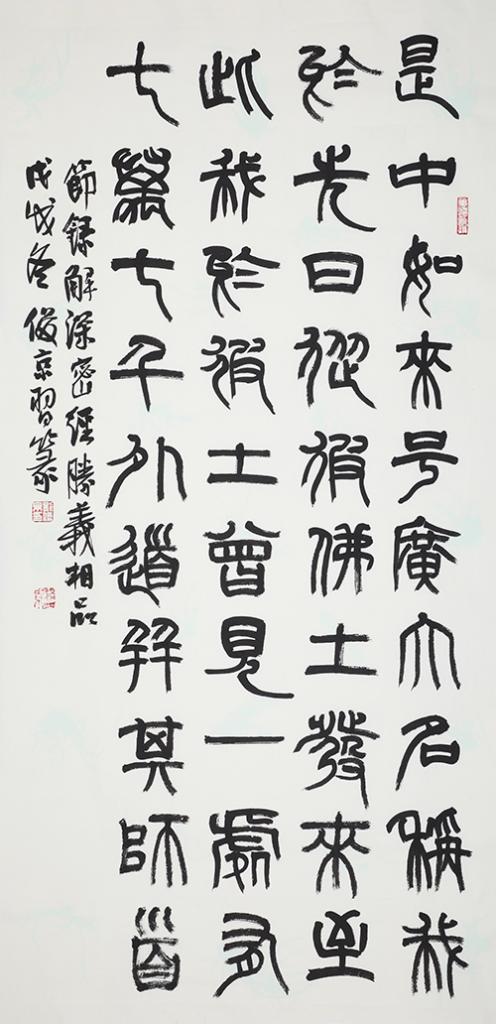 是中如來号廣大名稱我
於先日從彼佛土發來至
此我於彼土曾見一處有
七萬七千外道并其師首
節録解深密經勝義相品
戊戌冬俊京習篆